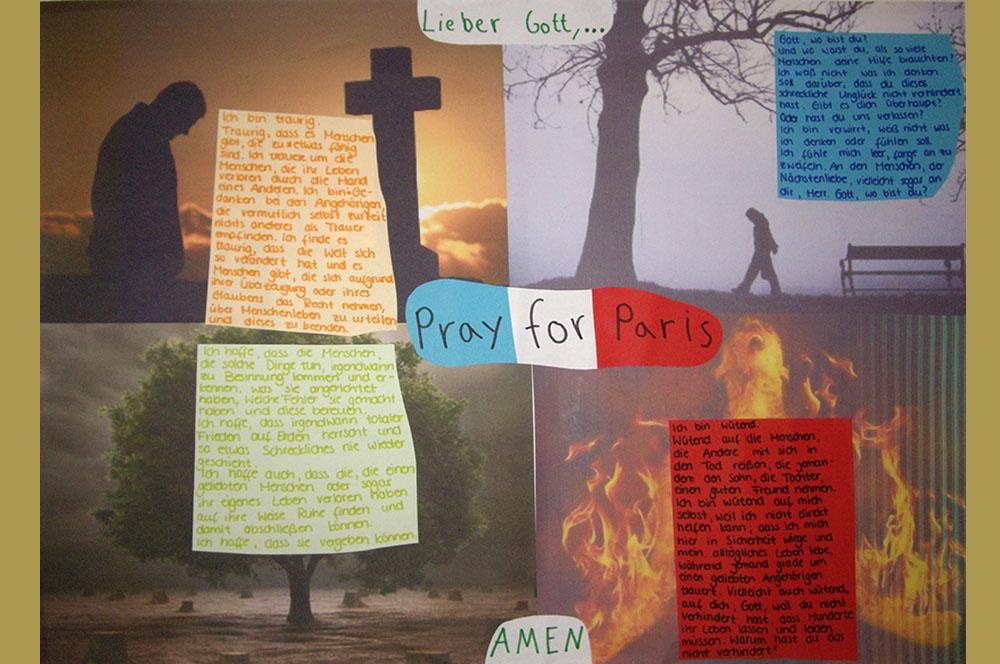 Lieber Gott,...
Ich bin traurig.
Traurig, dass es Menschen
gibt, die zu etwas fähig
sind. Ich trauere um die
Menschen, die ihr Leben
verloren durch die Hand
eines Anderen. Ich bin Ge-
danken bei den Angehörigen,
die vermutlich selbst zurzeit
nichts anderes als Trauer
empfinden. Ich finde es
traurig, dass die Welt sich
so verändert hat und es
Menschen gibt, die sich aufgrund
ihrer Überzeugung oder ihres
Glaubens das Recht nehmen,
über Menschenleben zu urteilen
und dieses zu beenden.
Gott, wo bist du?
Und wo warst du, als so viele
Menschen deine Hilfe brauchten?
Ich weiß nicht was ich denken
soll darüber, dass du dieses
schreckliche Unglück nicht verhindert
hast. Gibt es dich überhaupt?
Oder hast du uns verlassen?
Ich bin verwirrt, weiß nicht was
ich denken oder fühlen soll.
Ich fühle mich leer, fange an zu
zweifeln. An den Menschen, der
Nächstenliebe, vielleicht sogar an
dir, Herr. Gott, wo bist du?
Pray for Paris
Ich hoffe, dass die Menschen,
die solche Dinge tun, irgendwann
zu Besinnung kommen und er-
kennen, was sie angerichtet
haben, welche Fehler sie gemacht
haben und diese bereuen.
Ich hoffe, dass irgendwann totaler
Frieden auf Erden herrscht und
so etwas Schreckliches nie wieder
geschieht.
Ich hoffe auch, dass die, die einen
geliebten Menschen oder sogar
ihr eigenes Leben verloren haben
auf ihre Weise Ruhe finden und
damit abschließen können.
Ich hoffe, dass sie vergeben können.
Ich bin wütend.
Wütend auf die Menschen,
die Andere mit sich in
den Tod reißen, die jeman-
dem den Sohn, die Tochter,
einen guten Freund nehmen.
Ich bin wütend auf mich
selbst, weil ich nicht direkt
helfen kann, dass ich mich
hier in Sicherheit wiege und
mein alltägliches Leben lebe,
während jemand grade um
einen geliebten Angehörigen
trauert. Vielleicht auch wütend,
auf dich, Gott, weil du nicht
verhindert hast, dass Hunderte
ihr Leben lassen und leiden
müssen. Warum hast du das
nicht verhindert?
AMEN